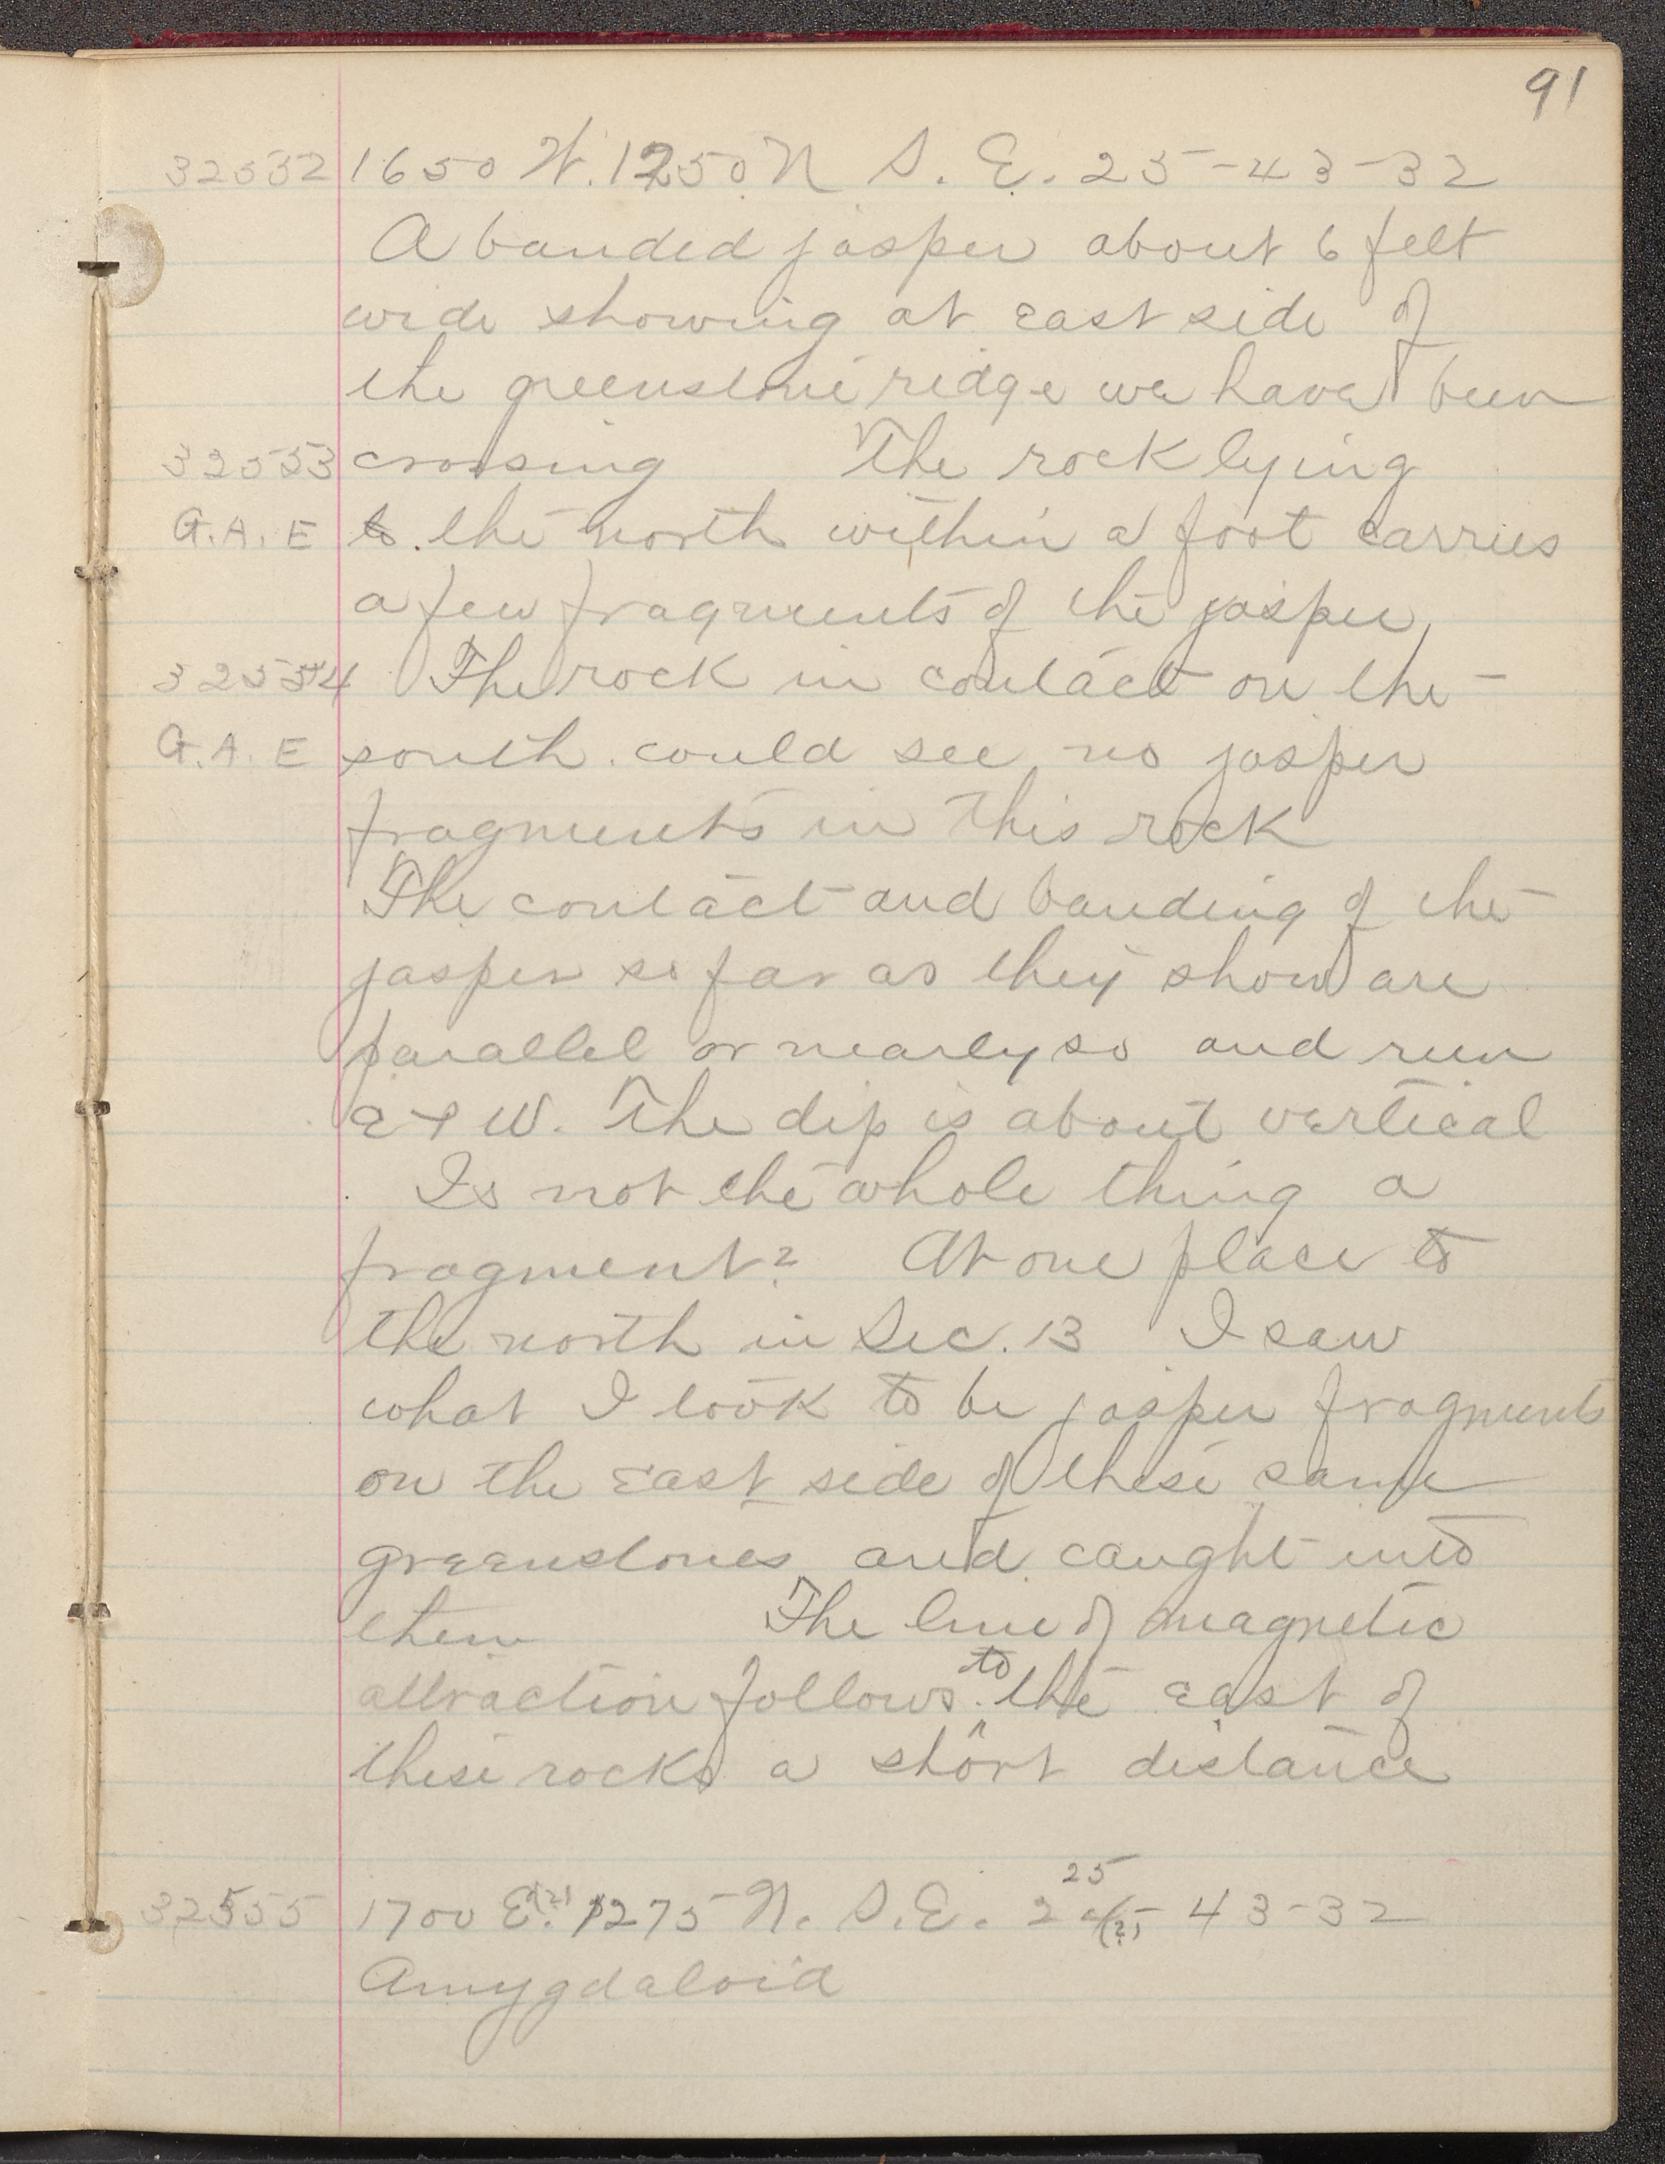 91
32552 1650 W. 1250 N S. E. 25-43-32
A banded jasper about 6 feet
wide showing at east side of
the greenstone ridge we have been
32553 crossing The rock lying
G.A.E to the north within a foot carries
a few fragments of the jasper,
32554 The rock in contact on the
G.A.E south could see no jasper
fragments in this rock
The contact and banding of the
jasper so far as they show are
parallel or nearly so and run
E + W. The dip is about vertical
Is not the whole thing a
fragment? At one place to
the north in Sec. 13 I saw
what I took to be jasper fragments
on the east side of these same
greenstones and caught into
them The line of magnetic
attraction follows to the east of
these rocks a short distance
25
32555 1700 E.(?) 1275 N. S.E. 26(?) 43-32
Amygdaloid